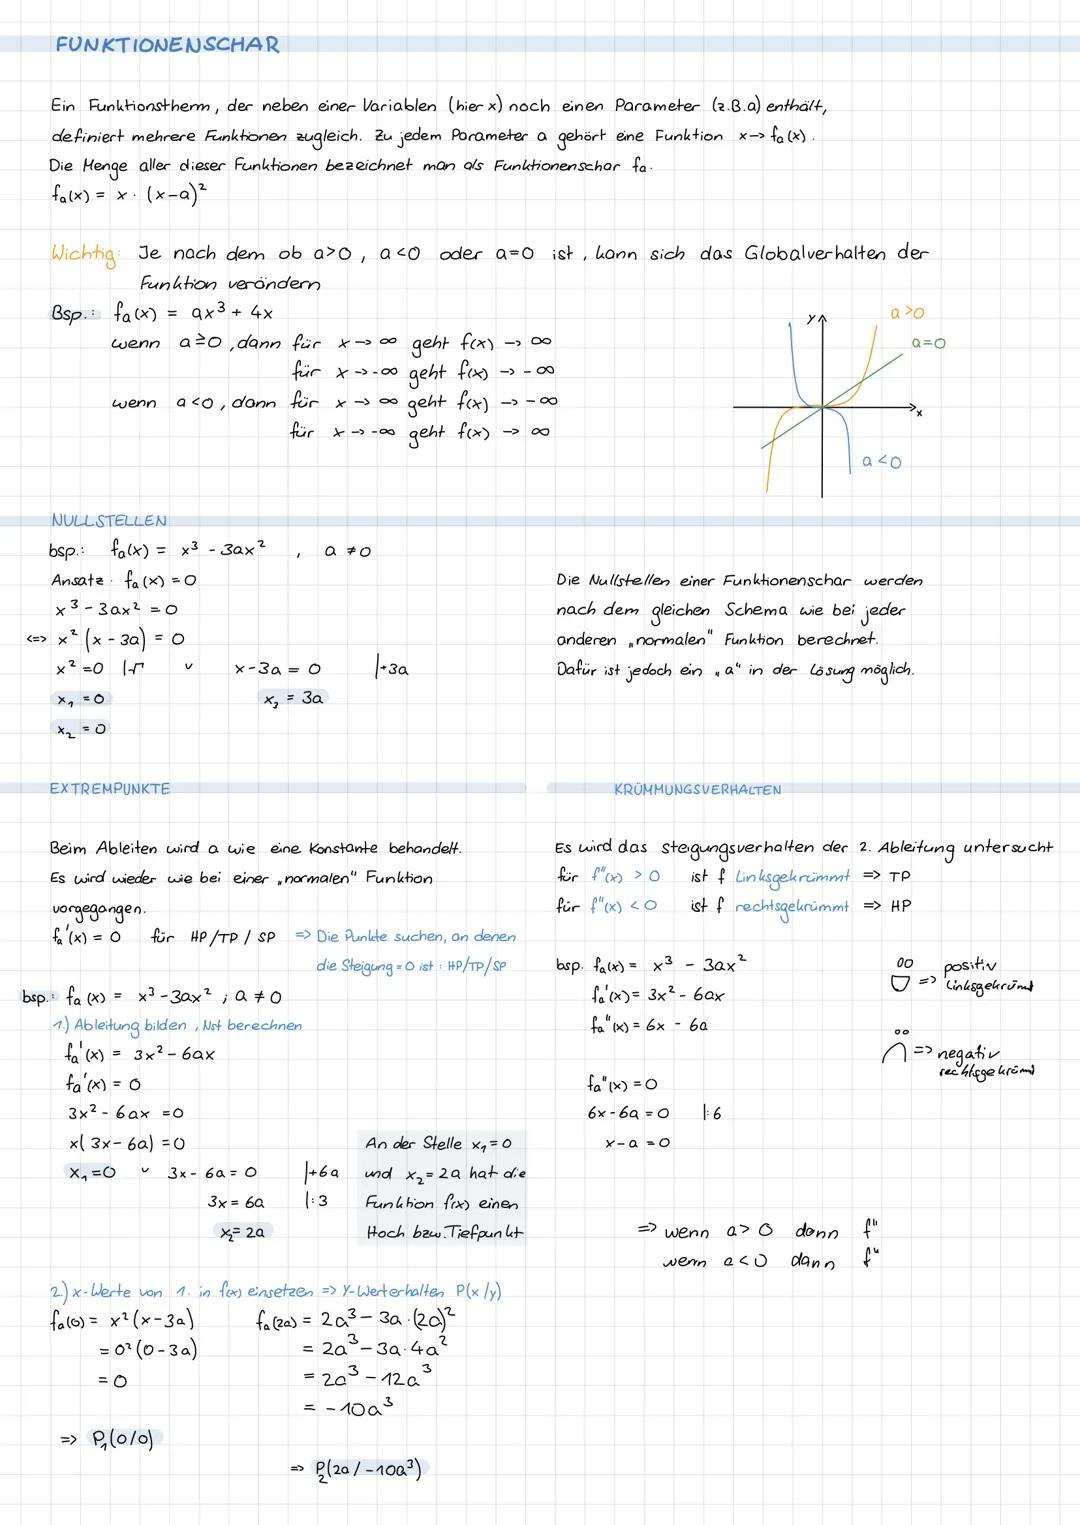 FUNKTIONENSCHAR
Ein Funktionstherm, der neben einer Variablen (hier x) noch einen Parameter (z.B. a) enthält,
definiert mehrere Funktionen zugleich. Zu jedem Parameter a gehört eine Funktion x→ fa(x).
Die Menge aller dieser Funktionen bezeichnet man als Funktionenschar fa.
fa(x) = x · (x-a)²
Wichtig: Je nach dem ob a>0, a<0 oder a=0 ist, kann sich das Globalverhalten der
Funktion verändern
Bsp.: fa(x) = ax³ + 4x
wenn a≥0, dann für x → ∞ geht f(x) → ∞
für x → -∞ geht f(x) → -∞
wenn a<0, dann für x → ∞ geht f(x) → -∞
für x → -∞ geht f(x) → ∞
y
a>0
a=0
x
a<0
NULLSTELLEN
bsp.: fa(x) = x³ - 3ax² , a ≠0
Ansatz: fa(x) = 0
x³ - 3ax² = 0
<=> x² (x - 3a) = 0
x² = 0 |√ v x-3a = 0 |+3a
x₁ = 0 x₃ = 3a
x₂ = 0
Die Nullstellen einer Funktionenschar werden
nach dem gleichen Schema wie bei jeder
anderen „normalen" Funktion berechnet.
Dafür ist jedoch ein „a" in der Lösung möglich.
EXTREMPUNKTE
Beim Ableiten wird a wie eine Konstante behandelt.
Es wird wieder wie bei einer „normalen" Funktion
vorgegangen.
fa'(x) = 0 für HP/TP/SP => Die Punkte suchen, an denen
die Steigung = 0 ist : HP/TP/SP
bsp.: fa(x) = x³ - 3ax² ; a ≠ 0
1.) Ableitung bilden, Nst berechnen
fa'(x) = 3x² - 6ax
fa'(x) = 0
3x² - 6ax = 0
x( 3x - 6a) = 0
x₁ = 0 v 3x - 6a = 0 |+6a
3x = 6a |:3
x₂ = 2a
An der Stelle x₁ = 0
und x₂ = 2a hat die
Funktion f(x) einen
Hoch bzw. Tiefpunkt
2.) x-Werte von 1. in f(x) einsetzen => Y-Wert erhalten P(x/y)
fa(0) = x² (x-3a) fa(2a) = 2a³ - 3a · (2a)²
= 0² (0-3a) = 2a³ - 3a · 4a²
= 0 = 2a³ - 12a³
= -10a³
=> P₁(0/0)
=> P₂(2a/-10a³)
KRÜMMUNGSVERHALTEN
Es wird das steigungsverhalten der 2. Ableitung untersucht
für f"(x) > 0 ist f linksgekrümmt => TP
für f"(x) < 0 ist f rechtsgekrümmt => HP
bsp. fa(x) = x³ - 3ax²
fa'(x) = 3x² - 6ax
fa"(x) = 6x - 6a
=> positiv
linksgekrümmt
=> negativ
rechtsgekrümmt
fa"(x) = 0
6x - 6a = 0 |:6
x - a = 0
=> wenn a > 0 dann f"
wenn a < 0 dann f"